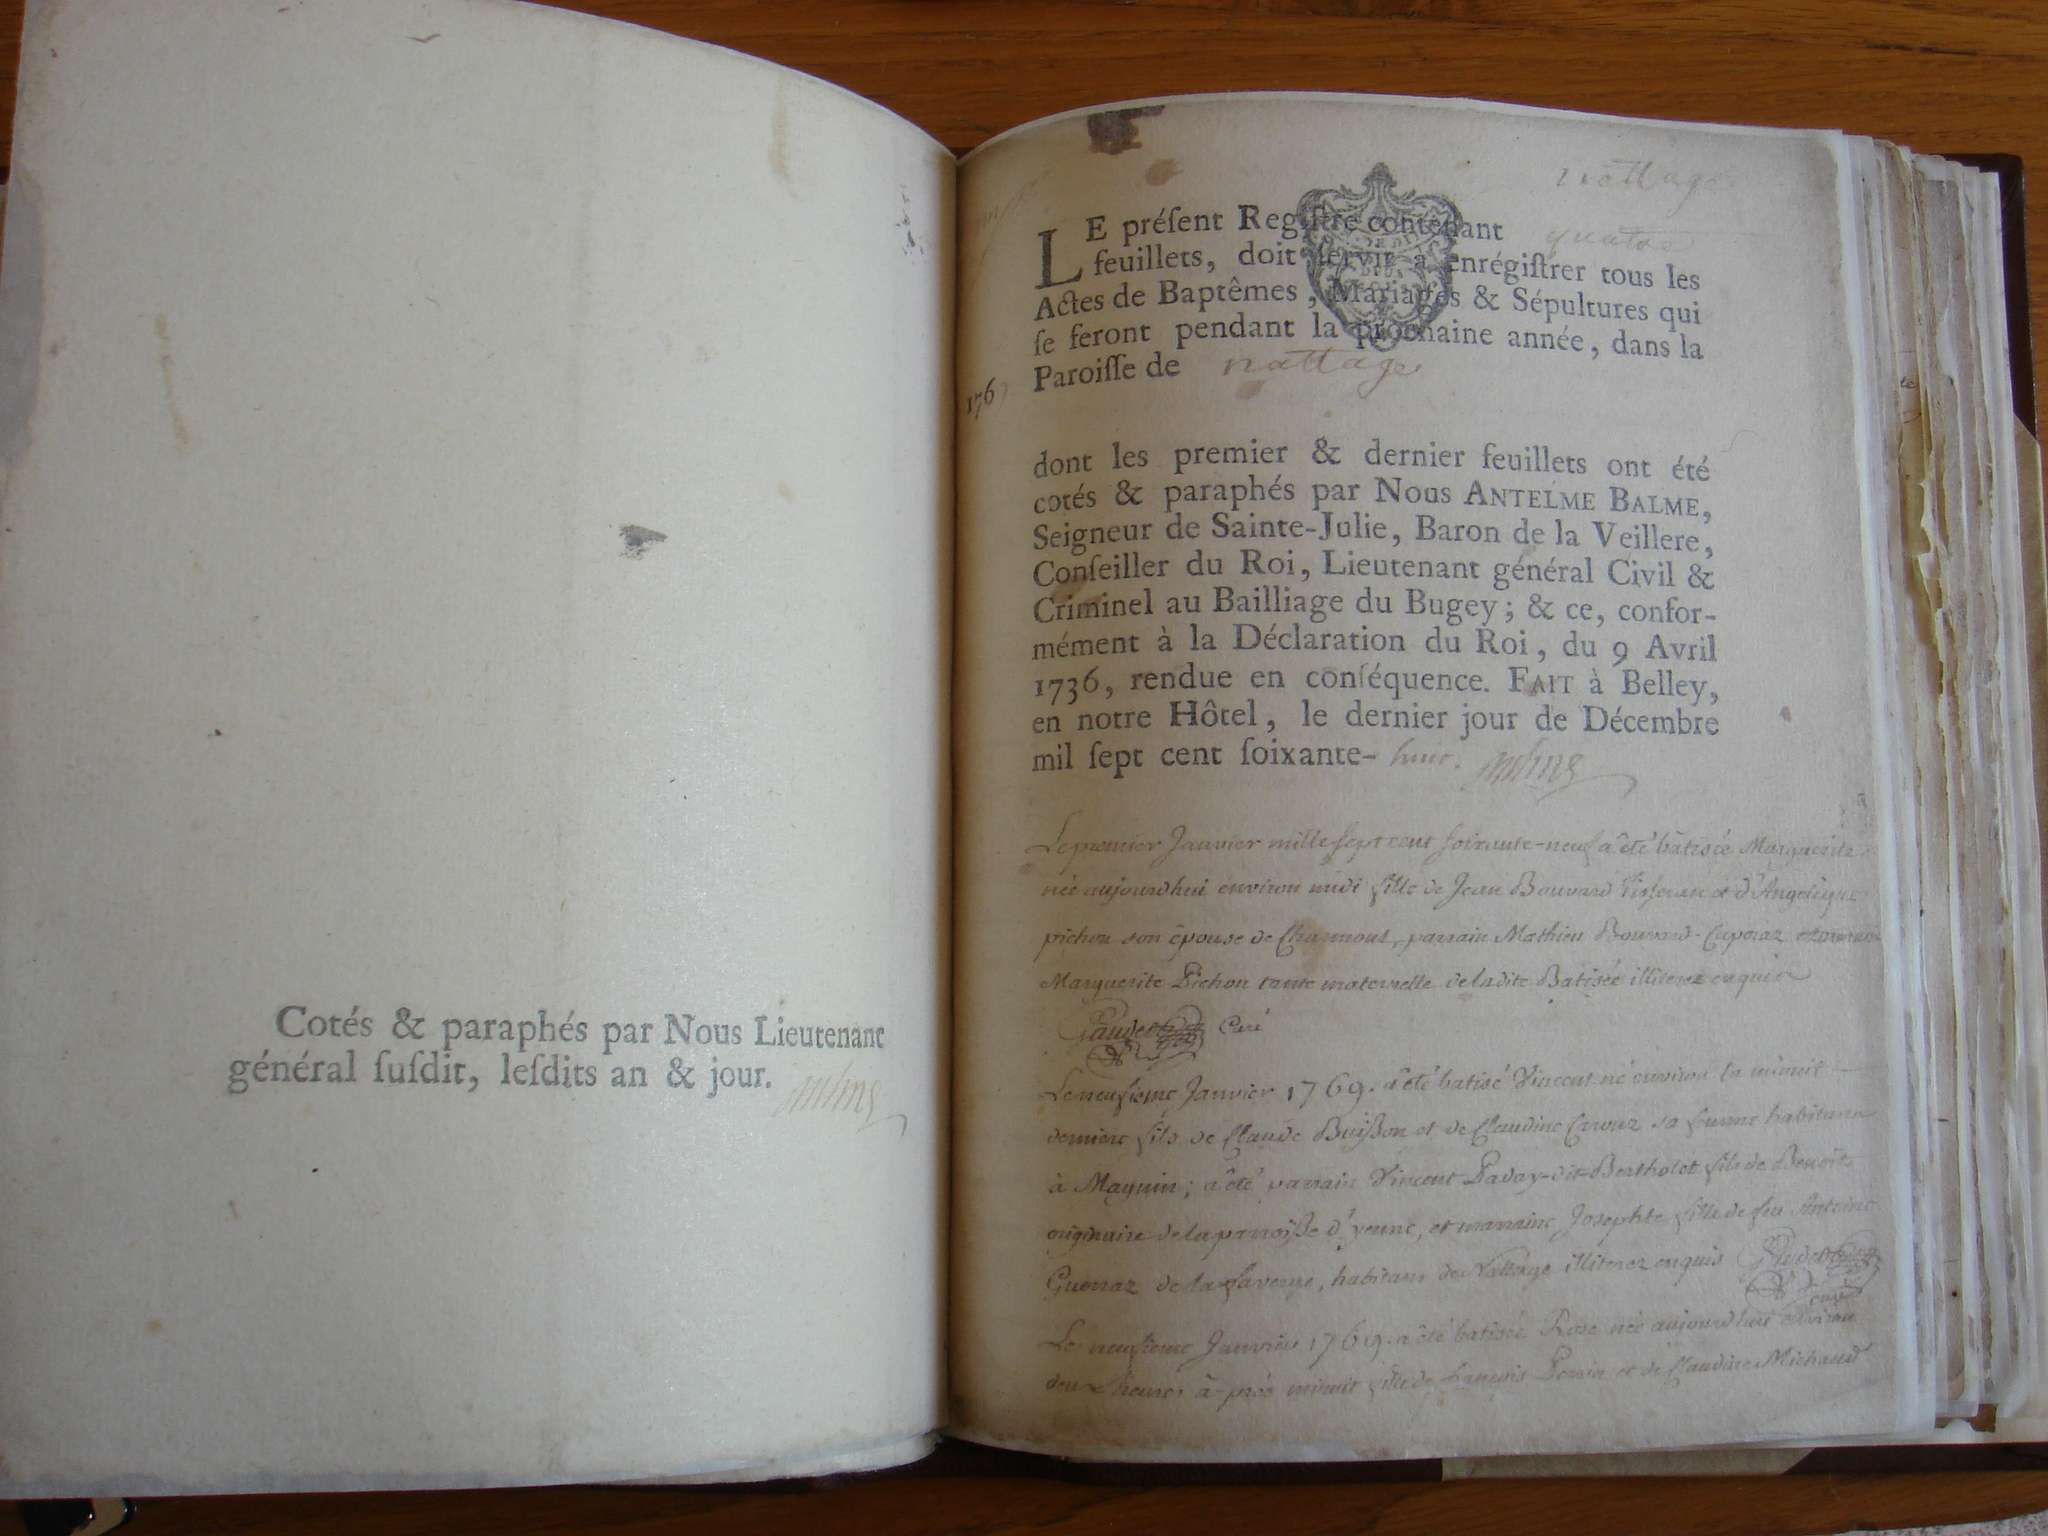 Cotés & paraphés par Nous Lieutenant
général ſuſdit, leſdits an & jour.
nattage
LE préſent Regiſtre contenant quatre
feuillets, doit ſervir à enrégiſtrer tous les
Actes de Baptêmes, Mariages & Sépultures qui
ſe feront pendant la prochaine année, dans la
Paroiſſe de nattage
176
dont les premier & dernier feuillets ont été
cotés & paraphés par Nous ANTELME BALME,
Seigneur de Sainte-Julie, Baron de la Veillere,
Conſeiller du Roi, Lieutenant général Civil &
Criminel au Bailliage du Bugey; & ce, confor-
mément à la Déclaration du Roi, du 9 Avril
1736, rendue en conſéquence. FAIT à Belley,
en notre Hôtel, le dernier jour de Décembre
mil ſept cent ſoixante- huit.
Le premier Janvier mille sept cent soixante-neuf a été batisée Marguerite
née aujourdhui environ midi fille de Jean Bouvard Tisseran et d'Angelique
pichon son épouse de Charmont, parrain Mathieu Bouvard-Caporaz
Marguerite Pichon tante maternelle de ladite Batisée illiterez enquis
Curé
Le neufieme Janvier 1769. a été batisé Vincent né environ la minuit
derniere fils de Claude Buisson et de Claudine sa femme habitans
à Magnin; a été parrain Vincent Paday-dit-Bertholet fils de Benoit
originaire de la parroisse d'yenne, et marraine Josephte fille de feu Antoine
Guerraz de la, habitans de Nattage illiterez enquis
curé
Le neufieme Janvier 1769. a été batisée Rose née aujourdhui environ
deux heures à-près minuit fille de François Perrin et de Claudine Michaud